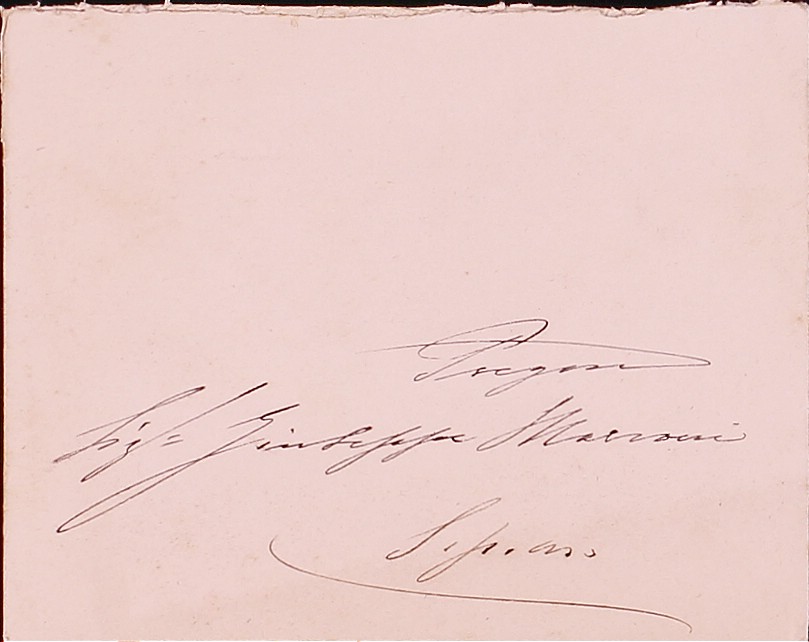 Pregmo
Sigr Giuseppe Marconi
S. p. m.